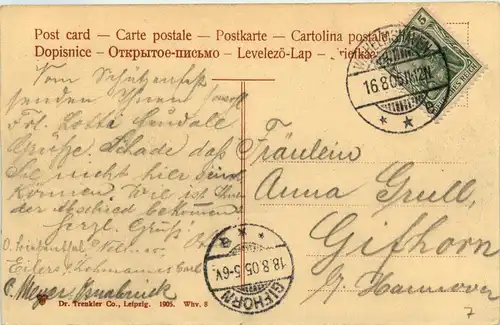 Post card – Carte postale – Postkarte – Cartolina postale
Dopisnice – Открытое-письмо – Levelező-Lap –
WILHELMSHAVEN
16.8.05.11-12N
5
Vom Schützenfest
senden Ihnen sowie
Frl. Lotti
Grüße. Schade daß
Sie nicht hier sein
können. Wie ist Ihnen
der Abschied bekommen?
herzl. Gruß!
Eilers
C. Meyer, Osnabrück
Fräulein
Anna Grull,
Gifhorn
b/ Hannover
GIFHORN
18.8.05.5-6V.
Dr. Trenkler Co., Leipzig. 1905. Whv. 8
7